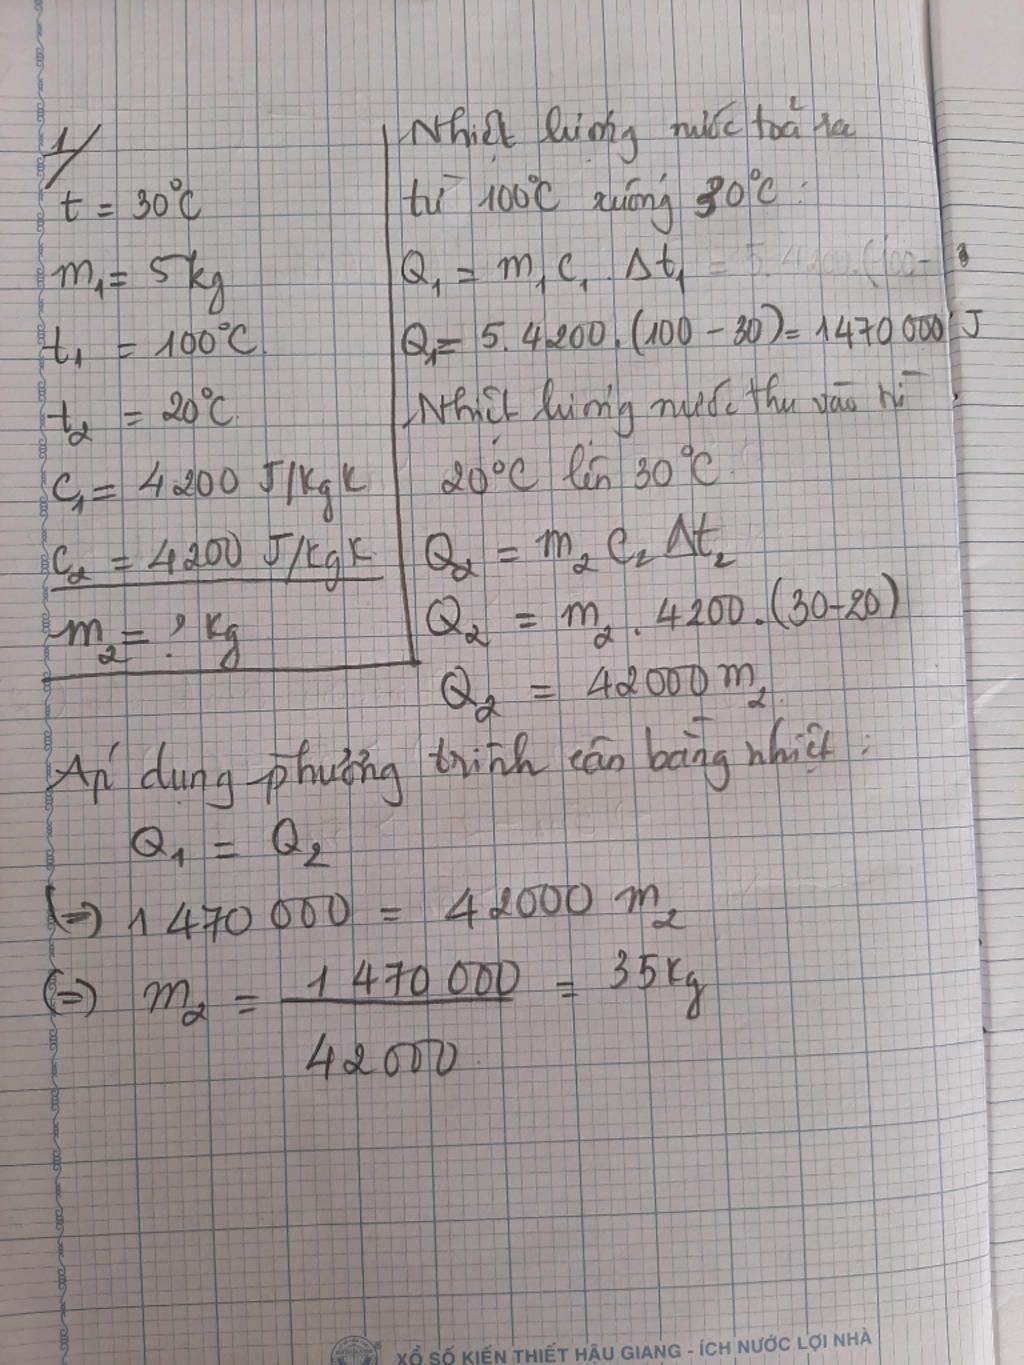 1/
t = 30°C
m₁ = 5kg
t₁ = 100°C
t₂ = 20°C
C₁ = 4200 J/kgK
C₂ = 4200 J/kgK
m₂ = ? kg
Nhiệt lượng nước toả ra
từ 100°C xuống 30°C :
Q₁ = m₁C₁.Δt₁ = 5.4200.(100-
Q₁ = 5.4200.(100-30) = 1470 000 J
Nhiệt lượng nước thu vào từ
20°C lên 30°C
Q₂ = m₂C₂Δt₂
Q₂ = m₂.4200.(30-20)
Q₂ = 42000m₂
Áp dụng phương trình cân bằng nhiệt :
Q₁ = Q₂
(=) 1470 000 = 42000 m₂
(=) m₂ = 1470 000 / 42000 = 35kg
XỔ SỐ KIẾN THIẾT HẬU GIANG - ÍCH NƯỚC LỢI NHÀ